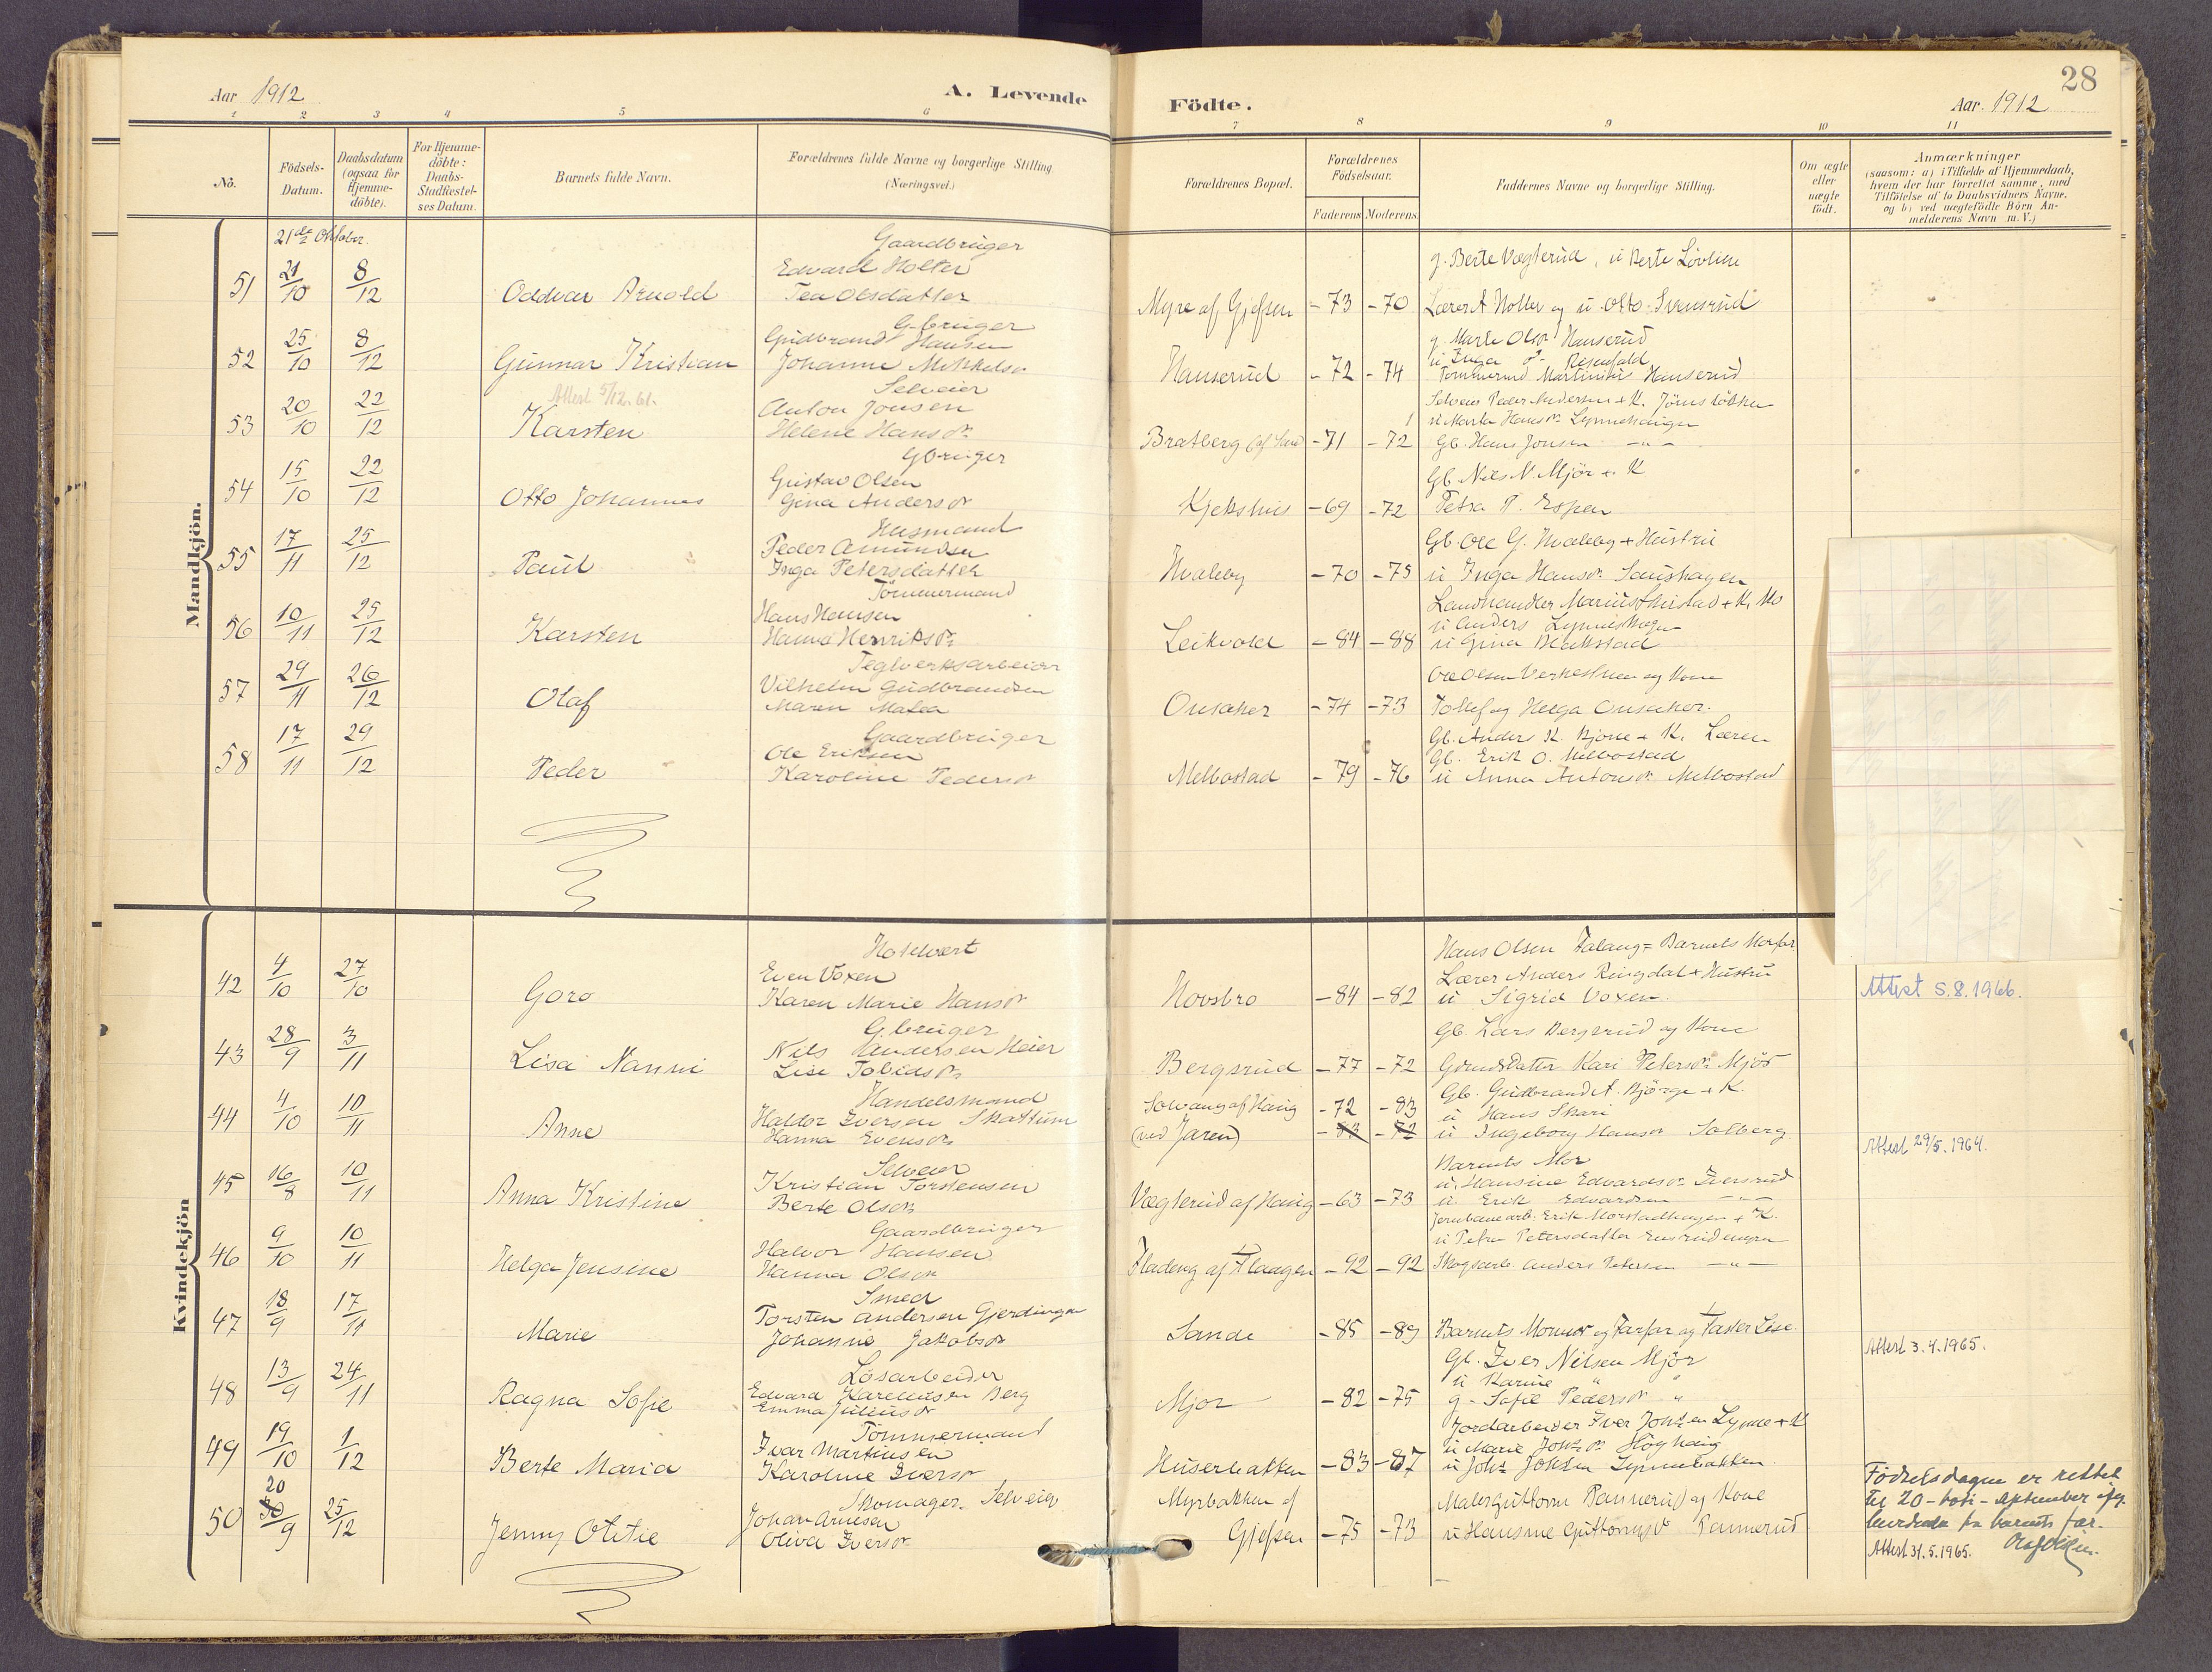 28
Aar 1912
A. Levende
Födte.
Aar. 1912
1 2 3 4 5 6 7 8 9 10 11
No.
Födsels-
Datum.
Daabsdatum
(ogsaa for
Hjemme-
döbte).
For Hjemme-
döbte:
Daabs-
Stadfæstel-
ses Datum.
Barnets fulde Navn.
Forældrenes fulde Navne og borgerlige Stilling
(Næringsvei.)
Forældrenes Bopæl.
Forældrenes
Födselsaar.
Faderens Moderens
Faddernes Navne og borgerlige Stilling.
Om ægte
eller
uægte
födt.
Anmærkninger
(saasom: a) i Tilfælde af Hjemmedaab,
hvem der har forrettet samme, med
Tilföielse af to Daabsvidners Navne.
og b) ved uægtefödte Börn An-
melderens Navn m. V.)
Mandkjön.
21de Oktober.
Gaardbruger
g. Berte Vægterud, u Berte Lövlien
51 21/10 8/12 Oddvar Arnold
Edvard Holter
Tea Olsdatter
Myre af Gjefsen -73 -70 Lærer A Holter og u. Otto Svensrud
G.bruger
g. Marte Olsdr Hanserud
52 25/10 8/12 Gunnar Kristian
Gudbrand Hansen
Johanne Mikkelsdr
Hanserud -72 -74
u Inga
Tömmermd Martinius Hanserud
Attest 5/12.61.
Selveier
Selveier Peder Andersen + K.
53 20/10 22/12 Karsten
Anton Jonsen
Helene Hansdr
Bratberg -71 -72
u Marta Hansdr Lynnehaugen
Gb. Hans Jonsen —"—
Gbruger
Gb. Nils N. Mjör + K
54 15/10 22/12 Otto Johannes
Gustav Olsen
Gina Andersdr
Kjekshus -69 -72 Petra P. Espen
Husmand
Gb. Ole G. Hvaleby + Hustru
55 17/11 25/12 Paul
Peder Amundsen
Inga Petersdatter
Hvaleby -70 -75 u Inga Hansdr
Tömmermand
Landhandler Marius
56 10/11 25/12 Karsten
Hans Hansen
Hanna Henriksdr
Leikvold -84 -88
u Anders
u Gina
Teglverksarbeider
Ole Olsen og Kone
57 29/11 26/12 Olaf
Vilhelm Gudbrandsen
Maren Matea
Onsaker -74 -73 Tollef og Helga Onsaker.
Gaardbruger
Gb. Anders K. Bjöne + K.
58 17/11 29/12 Peder
Ole Eriksen
Karoline Pedersdr
Melbostad -79 -76
Gb. Erik O. Melbostad
u Anna Antonsdr Melbostad
Kvindekjön
Hotelvært
Hans Olsen Falang = Barnets Morfar
42 4/10 27/10 Goro
Even Voxen
Karen Marie Hansdr
Hovsbro -84 -82
Lærer Anders Ringdal + Hustru
u Sigrid Voxen.
Attest 5.8.1966.
G.bruger
Gb. Lars Bergsrud og Kone
43 28/9 3/11 Lisa Nanni
Nils Andersen Heier
Lise Tobiasdr
Bergsrud -77 -72 Gdmdsdatter Kari Petersdr Mjör
Handelsmand
Gb. Gudbrand A. Bjørge + K.
44 4/10 10/11 Anne
Haldor Iversen Skattum
Hanna Evensdr
Solvang af Haug
(ved Jaren)
-72 -83
-83 -72
u Hans Skari
u Ingeborg Hansdr Solberg.
Attest 29/5.1964.
Selveier
Barnets Mor
45 16/8 10/11 Anna Kristine
Kristian Torstensen
Berte Olsdr
Vægterud af Haug -63 -73
u. Hansine Edvardsdr Iversrud
u. Erik Edvardsen —"—
Gaardbruger
Jernbanearb. Erik Morstadhagen + K.
46 9/10 10/11 Helga Jensine
Halvor Hansen
Hanna Olsdr
Fladeng af Flaagen -92 -92
u Petra Petersdatter
Skogsarb. Anders Petersen —"—
Smed
47 18/9 17/11 Marie
Torsten Andersen Gjerdingen
Johanne Jakobsdr
Sande -85 -89 Barnets Mormor og Farfar og Faster Lise.
Attest 3.4.1965.
Lösarbeider
Gb. Iver Nilsen Mjör
48 13/9 24/11 Ragna Sofie
Edvard Kareliusen Berg
Emma Juliusdr
Mjör -82 -75
u Karine "
g - Sofie Pedersdr "
Tömmermand
Jordarbeider Iver Johsen Lynne + K
49 19/10 1/12 Berte Maria
Ivar Martinsen
Karoline Iversdr
Huserbakken -83 -87
u Marie Johsdr Höghaug
u Johs Johsen Lynnebakken.
Skomager. Selveier
Maler Guttorm Rannerud og Kone
20
50 30/9 25/12 Jenny Otitie
Johan Arnesen
Oliva Iversdr
Myrbakken af
Gjefsen -75 -73 u Hansine Guttormsdr Rannerud
Födselsdagen er rettet
til 20
barnets far.
Attest 31.5.1965.